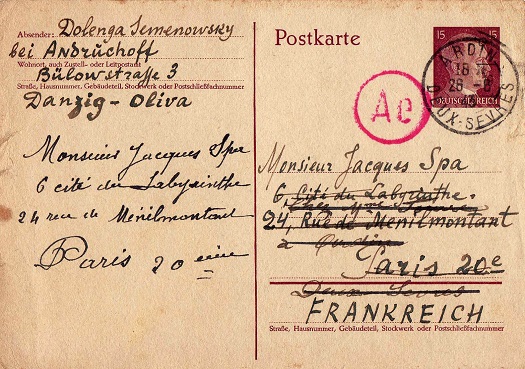 Absender: Dolenga Semenowsky
bei Andruchoff
Wohnort, auch Zustell- oder Leitpostamt
Bülowstrasse 3
Straße, Hausnummer, Gebäudeteil, Stockwerk oder Postschließfachnummer
Danzig-Oliva
Monsieur Jacques Spa
6 cité du Labyrinthe
24 rue de Ménilmontant
Paris 20 ème
Postkarte
15 15
DEUTSCHES REICH
ARDIN
DEUX-SEVRES
Ae
Monsieur Jacques Spa
6, Cité du Labyrinthe.
24, Rue de Ménilmontant
à
Paris 20e
Deux Sevres
FRANKREICH
Straße, Hausnummer, Gebäudeteil, Stockwerk oder Postschließfachnummer